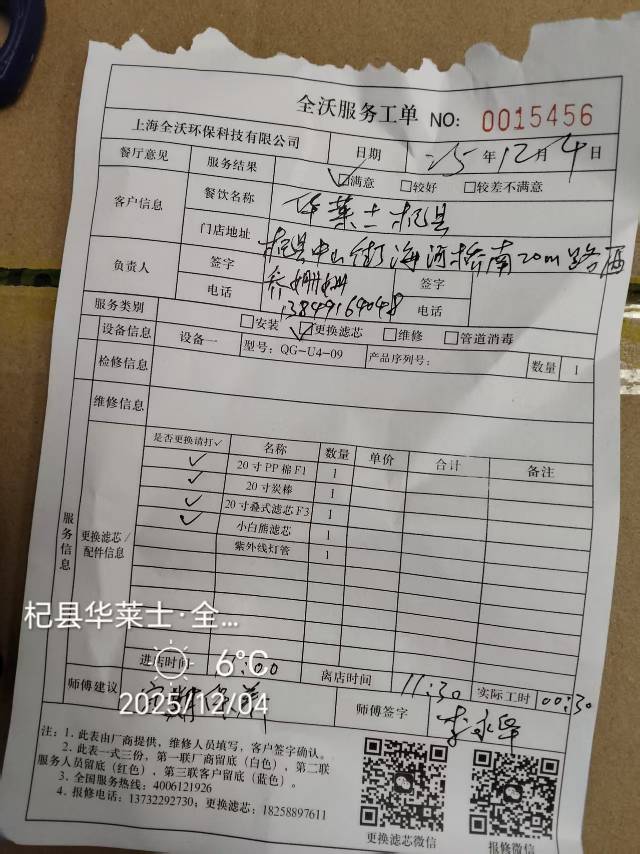 全沃服务工单 NO: 0015456
上海全沃环保科技有限公司 日期 25年12月4日
餐厅意见 服务结果 ☑满意 □较好 □较差不满意
客户信息 餐饮名称 华莱士杞县
门店地址 杞县中山街海河桥南20m路西
负责人 签字 签字
电话 13849164048 电话
服务类别 □安装 ☑更换滤芯 □维修 □管道消毒
设备信息 设备一 型号: QG-U4-09 产品序列号: 数量 1
检修信息
维修信息
服务信息
更换滤芯/配件信息
是否更换请打✓ 名称 数量 单价 合计 备注
✓ 20寸PP棉F1 1
✓ 20寸炭棒 1
✓ 20寸叠式滤芯F3 1
✓ 小白熊滤芯 1
紫外线灯管 1
杞县华莱士·全...
6°C
2025/12/04
进店时间 :00 离店时间 11:30 实际工时 00:30
师傅建议 定期保养 师傅签字
注: 1. 此表由厂商提供, 维修人员填写, 客户签字确认。
2. 此表一式三份, 第一联厂商留底(白色), 第二联
服务人员留底(红色), 第三联客户留底(蓝色)。
3. 全国服务热线: 4006121926
4. 报修电话: 13732292730; 更换滤芯: 18258897611
更换滤芯微信 报修微信